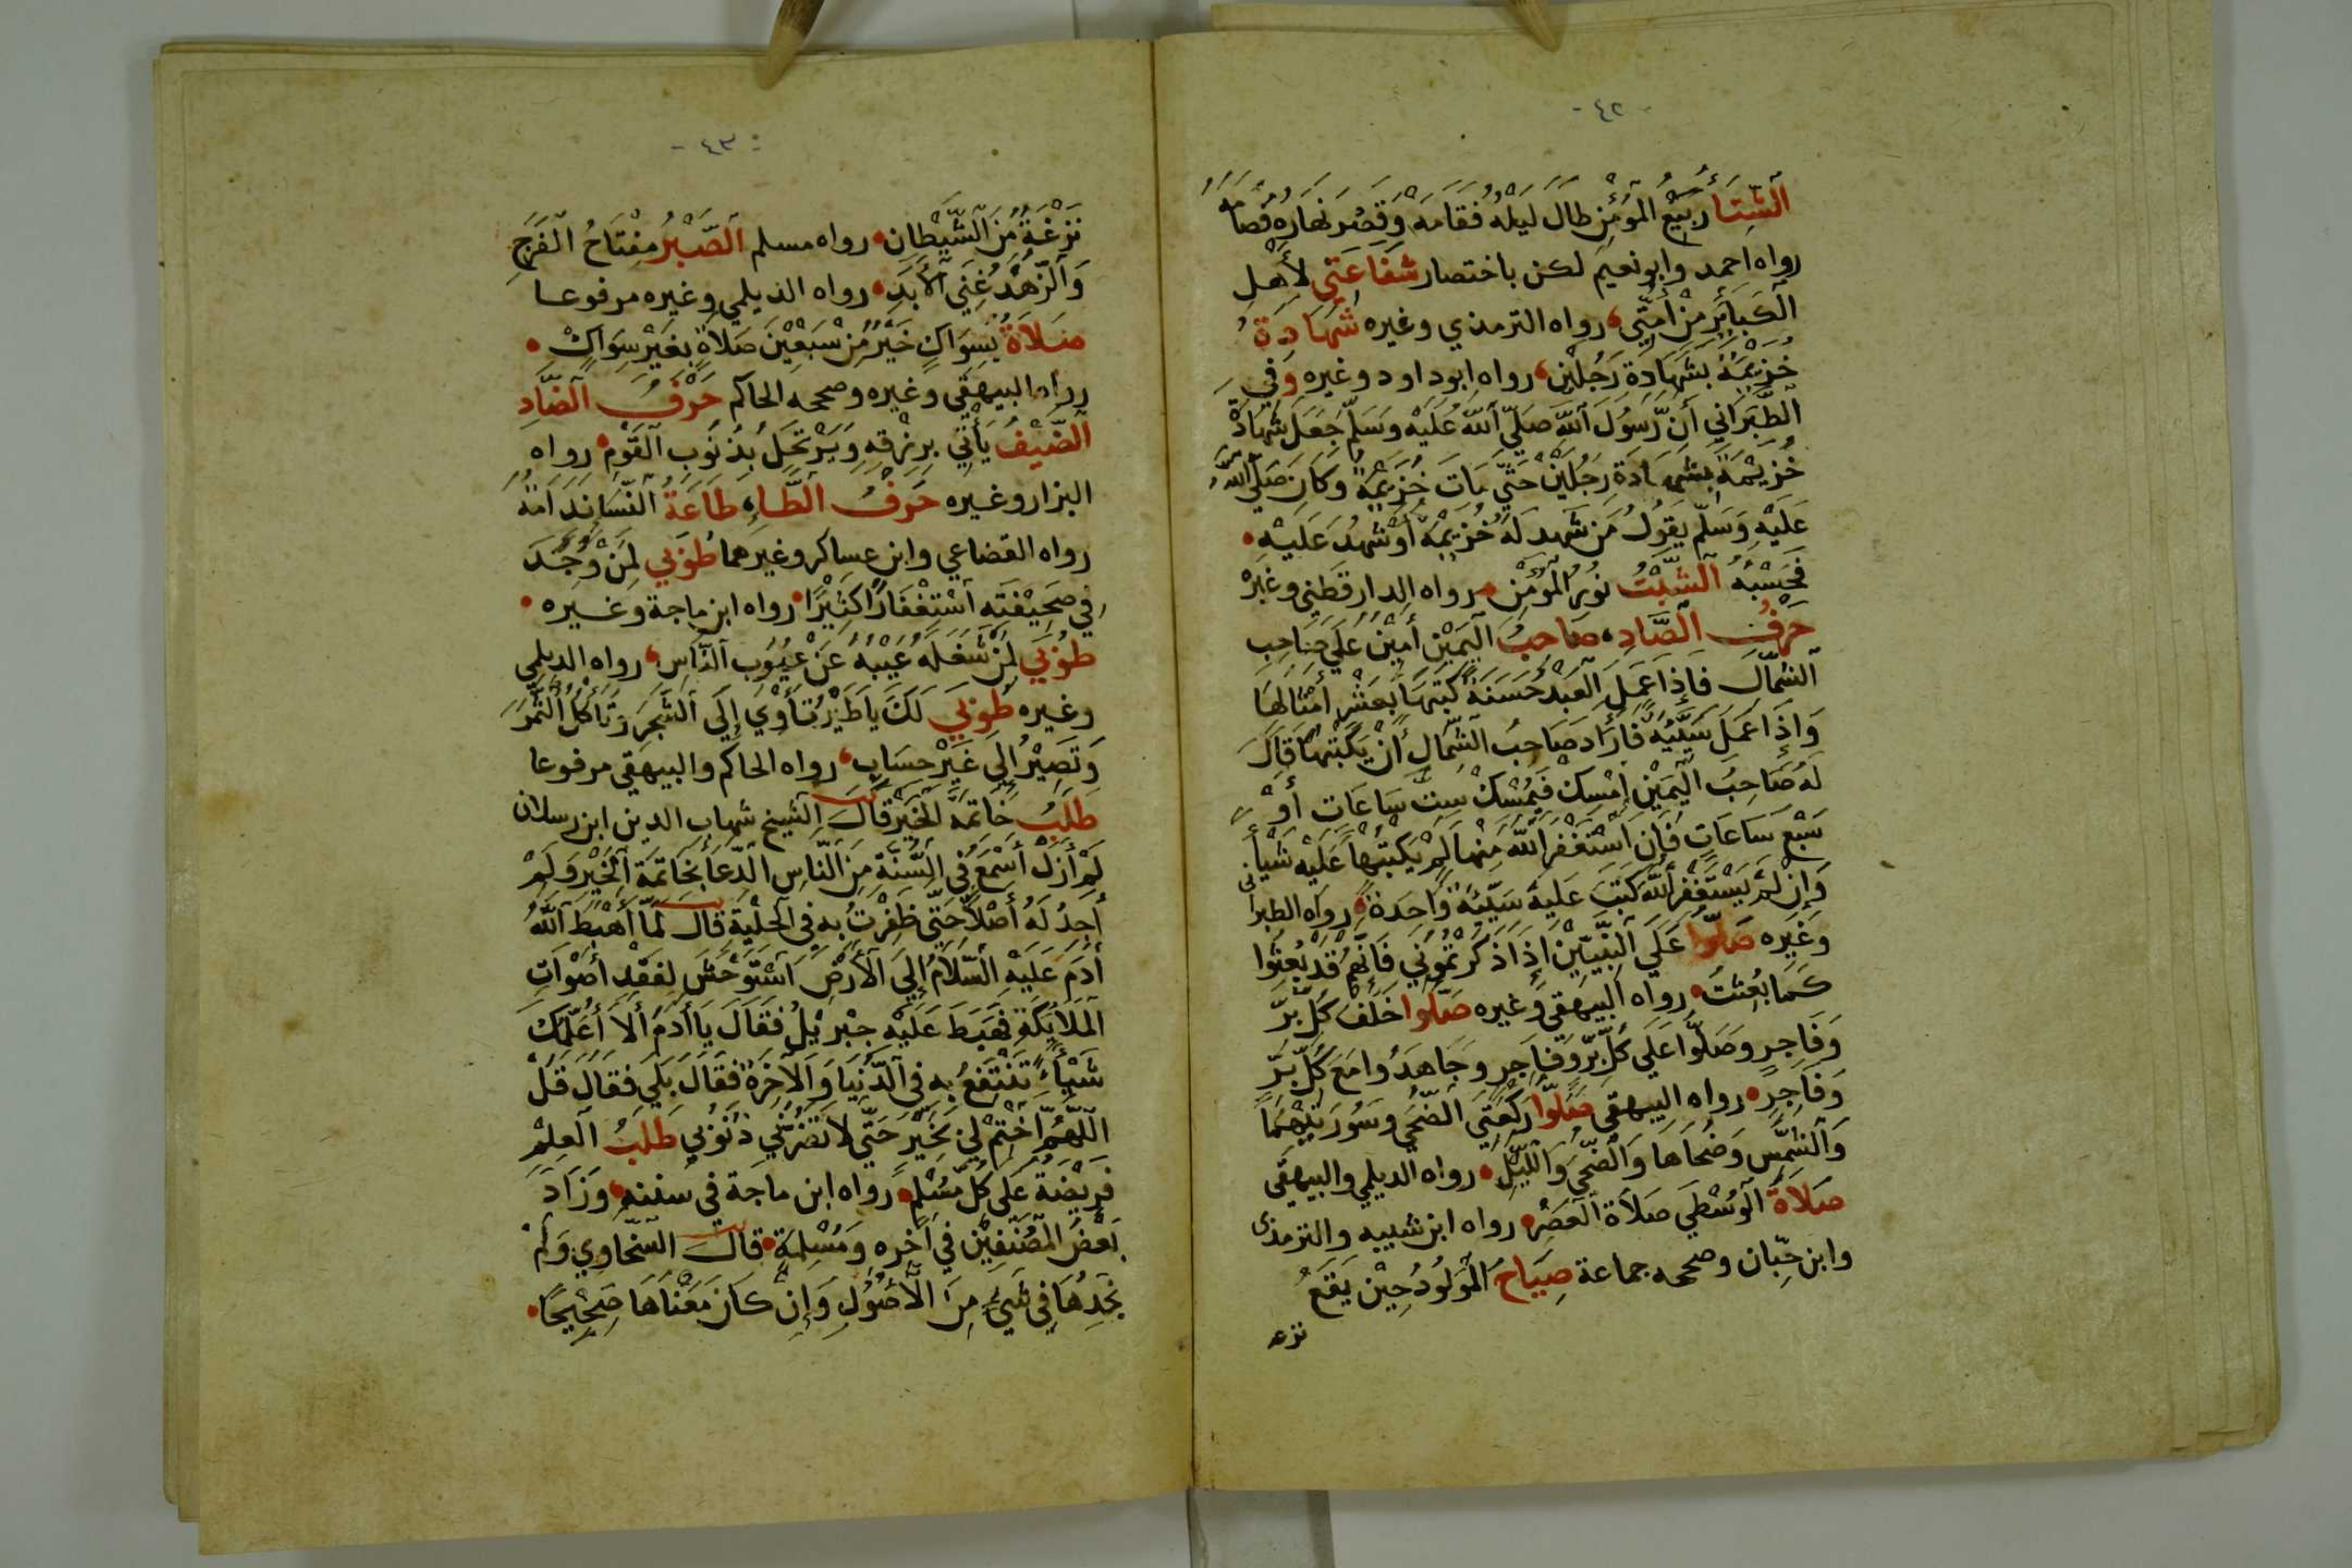 -٤٢-
الشِّتَا رَبِيْعُ الْمُؤْمِنِ طَالَ لَيْلُهُ فَقَامَهُ وَقَصُرَ نَهَارُهُ فَصَامَهُ
رواه احمد وابونعيم لكن باختصار شَفَاعَتِي لِأَهْلِ
الْكَبَايِرِ مِنْ أُمَّتِي رواه الترمذي وغيره شَهَادَةُ
خُزَيْمَةَ بِشَهَادَةِ رَجُلَيْنِ رواه ابوداود وغيره وَفِي
الطَّبَرَانِي أَنَّ رَسُولَ اللهِ صَلَّي اللهُ عَلَيْهِ وَسَلَّمَ جَعَلَ شَهَادَةَ
خُزَيْمَةَ بِشَهَادَةِ رَجُلَيْنِ حَتَّي مَاتَ خُزَيْمَةُ وَكَانَ صَلَّي اللهُ
عَلَيْهِ وَسَلَّمَ يَقُولُ مَنْ شَهِدَ لَهُ خُزَيْمَةُ أَوْ شَهِدَ عَلَيْهِ
فَحَسْبُهُ الشَّيْبُ نُورُ الْمُؤْمِنِ رواه الدارقطني وغيره
حَرْفُ الصَّادِ صَاحِبُ الْيَمِيْنِ أَمِيْنٌ عَلَي صَاحِبِ
الشِّمَالِ فَإِذَا عَمِلَ الْعَبْدُ حَسَنَةً كَتَبَهَا بِعَشْرِ أَمْثَالِهَا
وَإِذَا عَمِلَ سَيِّئَةً فَأَرَادَ صَاحِبُ الشِّمَالِ أَنْ يَكْتُبَهَا قَالَ
لَهُ صَاحِبُ الْيَمِيْنِ إِمْسِكْ فَيُمْسِكْ سِتَّ سَاعَاتٍ أَوْ
سَبْعَ سَاعَاتٍ فَإِنِ اسْتَغْفَرَ اللهَ مِنْهَا لَمْ يَكْتُبْهَا عَلَيْهِ شَيْأً
وَإِنْ لَمْ يَسْتَغْفِرِ اللهَ كَتَبَ عَلَيْهِ سَيِّئَةً وَاحِدَةً رواه الطبراني
وَغَيْرِه صَلُّوا عَلَي النَّبِيِّيْنَ إِذَا ذَكَرْتُمُوْنِي فَإِنَّهُمْ قَدْ بُعِثُوا
كَمَا بُعِثْتُ رواه البيهقي وغيره صَلُّوا خَلْفَ كُلِّ بَرٍّ
وَفَاجِرٍ وَصَلُّوا عَلَي كُلِّ بَرٍّ وَفَاجِرٍ وَجَاهِدُوا مَعَ كُلِّ بَرٍّ
وَفَاجِرٍ رواه البيهقي صَلُّوا رَكْعَتَي الضُّحَي وَسُورَتَيْهِمَا
وَالشَّمْسِ وَضُحَاهَا وَالضُّحَي وَاللَّيْلِ رواه الديلمي والبيهقي
صَلَاةُ الْوُسْطَي صَلَاةُ الْعَصْرِ رواه ابن شيبه والترمذي
وابن حِبّان وصححه جماعة صِيَاحُ الْمَوْلُودِ حِيْنَ يَقَعُ
نزعه
-٤٣-
نَزْغَةٌ مِنَ الشَّيْطَانِ رواه مسلم الصَّبْرُ مِفْتَاحُ الْفَرَجِ
وَالزُّهْدُ غِنَي الْأَبَدِ رواه الديلمي وغيره مرفوعا
صَلَاةٌ بِسِوَاكٍ خَيْرٌ مِنْ سَبْعِيْنَ صَلَاةٍ بِغَيْرِ سِوَاكٍ
رواه البيهقي وغيره وصححه الحاكم حَرْفُ الضَّادِ
الضَّيْفُ يَأْتِي بِرِزْقِهِ وَيَرْتَحِلُ بِذُنُوبِ الْقَوْمِ رواه
البزار وغيره حَرْفُ الطَّاءِ طَاعَةُ النِّسَا نَدَامَةٌ
رواه القضاعي وابن عساكر وغيرهما طُوبَي لِمَنْ وُجِدَ
فِي صَحِيْفَتِهِ اسْتِغْفَارًا كَثِيْرًا رواه ابن ماجة وغيره
طُوبَي لِمَنْ شَغَلَهُ عَيْبُهُ عَنْ عُيُوبِ النَّاسِ رواه الديلمي
وغيره طُوبَي لَكَ يَا طَيْرُ تَأْوِي إِلَي الشَّجَرِ وَتَأْكُلُ الثَّمَرَ
وَتَصِيْرُ إِلَي غَيْرِ حِسَابٍ رواه الحاكم والبيهقي مرفوعا
طَلَبُ خَاتِمَةِ الْخَيْرِ قَالَ الشيخ شهاب الدين ابن رسلان
لَمْ أَزَلْ أَسْمَعُ فِي السُّنَّةِ مِنَ النَّاسِ الدُّعَاءَ بِخَاتِمَةِ الْخَيْرِ وَلَمْ
أَجِدْ لَهُ أَصْلًا حَتَّي ظَفِرْتُ بِهِ فِي الْحِلْيَةِ قَالَ لَمَّا أَهْبَطَ اللهُ
أَدَمَ عَلَيْهِ السَّلَامُ إِلَي الْأَرْضِ اسْتَوْحَشَ لِفَقْدِ أَصْوَاتِ
الْمَلَايِكَةِ فَهَبَطَ عَلَيْهِ جِبْرِيْلُ فَقَالَ يَا أَدَمُ أَلَا أُعَلِّمُكَ
شَيْأً تَنْتَفِعُ بِهِ فِي الدُّنْيَا وَالْأَخِرَةِ فَقَالَ بَلَي فَقَالَ قُلْ
اللَّهُمَّ اخْتِمْ لِي بِخَيْرٍ حَتَّي لَا تَضُرَّنِي ذُنُوْبِي طَلَبُ الْعِلْمِ
فَرِيْضَةٌ عَلَي كُلِّ مُسْلِمٍ رواه ابن ماجة في سننه وَزَادَ
بَعْضُ الْمُصَنِّفِيْنَ فِي أَخِرِهِ وَمُسْلِمَةٍ قَالَ السَّخَاوِي وَلَمْ
نَجِدْهَا فِي شَيْءٍ مِنَ الْأُصُولِ وَإِنْ كَانَ مَعْنَاهَا صَحِيْحًا